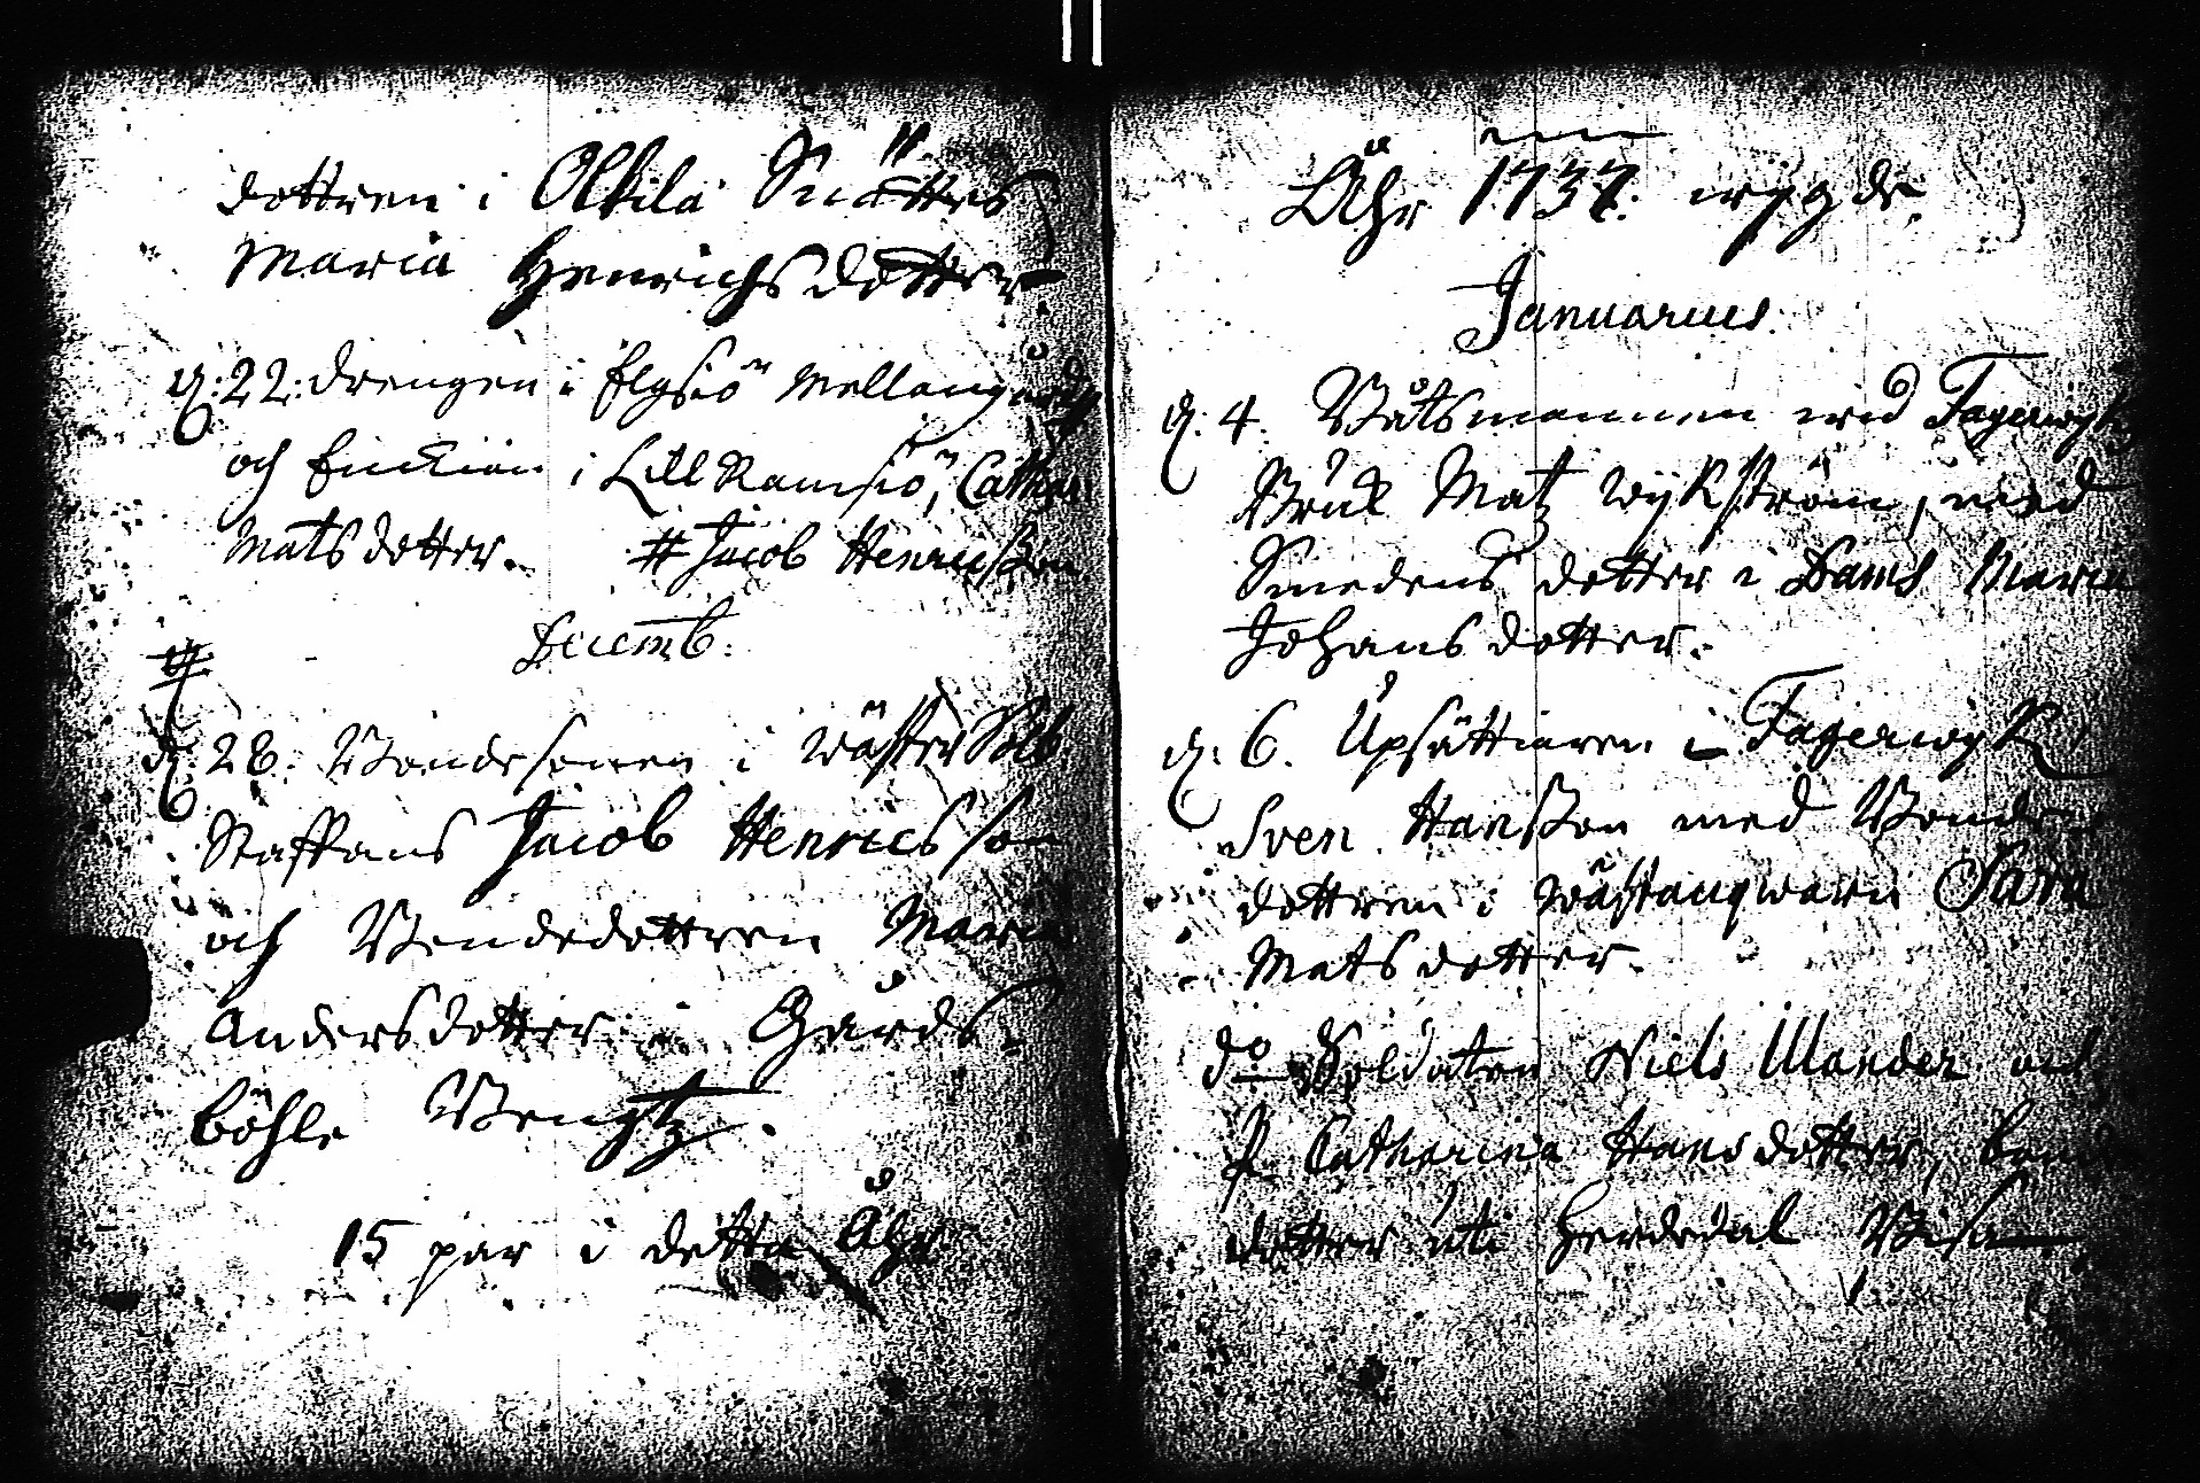 dottren i Olkila Snåttars
Maria Henrichsdotter.
d. 22. drengen i Elgsiö Mellangårds
och Enckian i Lill Ramsiö, Cathar:
Matsdotter. # Jacob Henricsson
Decemb:
#
d. 28. Bondesonen i Wäster Solb.
Staffans Jacob Henricsson
och Bondedottren Maria
Andersdotter i Gårds-
böhle Bengtz.
15 par i detta Åhr
Åhr 1737. wygde
Januarius.
d. 4. Båtsmannen wid Fagerwyk
Bruk Matz Wykström, med
Smedens dotter i Dams Maria
Johansdotter.
d. 6. Upsättiaren i Fagerwyk
Sven Hansson med Bonde
dottren i Wästanqwarn Sara
Matsdotter.
do Soldaten Niels Ulander och
P. Catharina Hansdotter, bonde
dotter uti Heredal